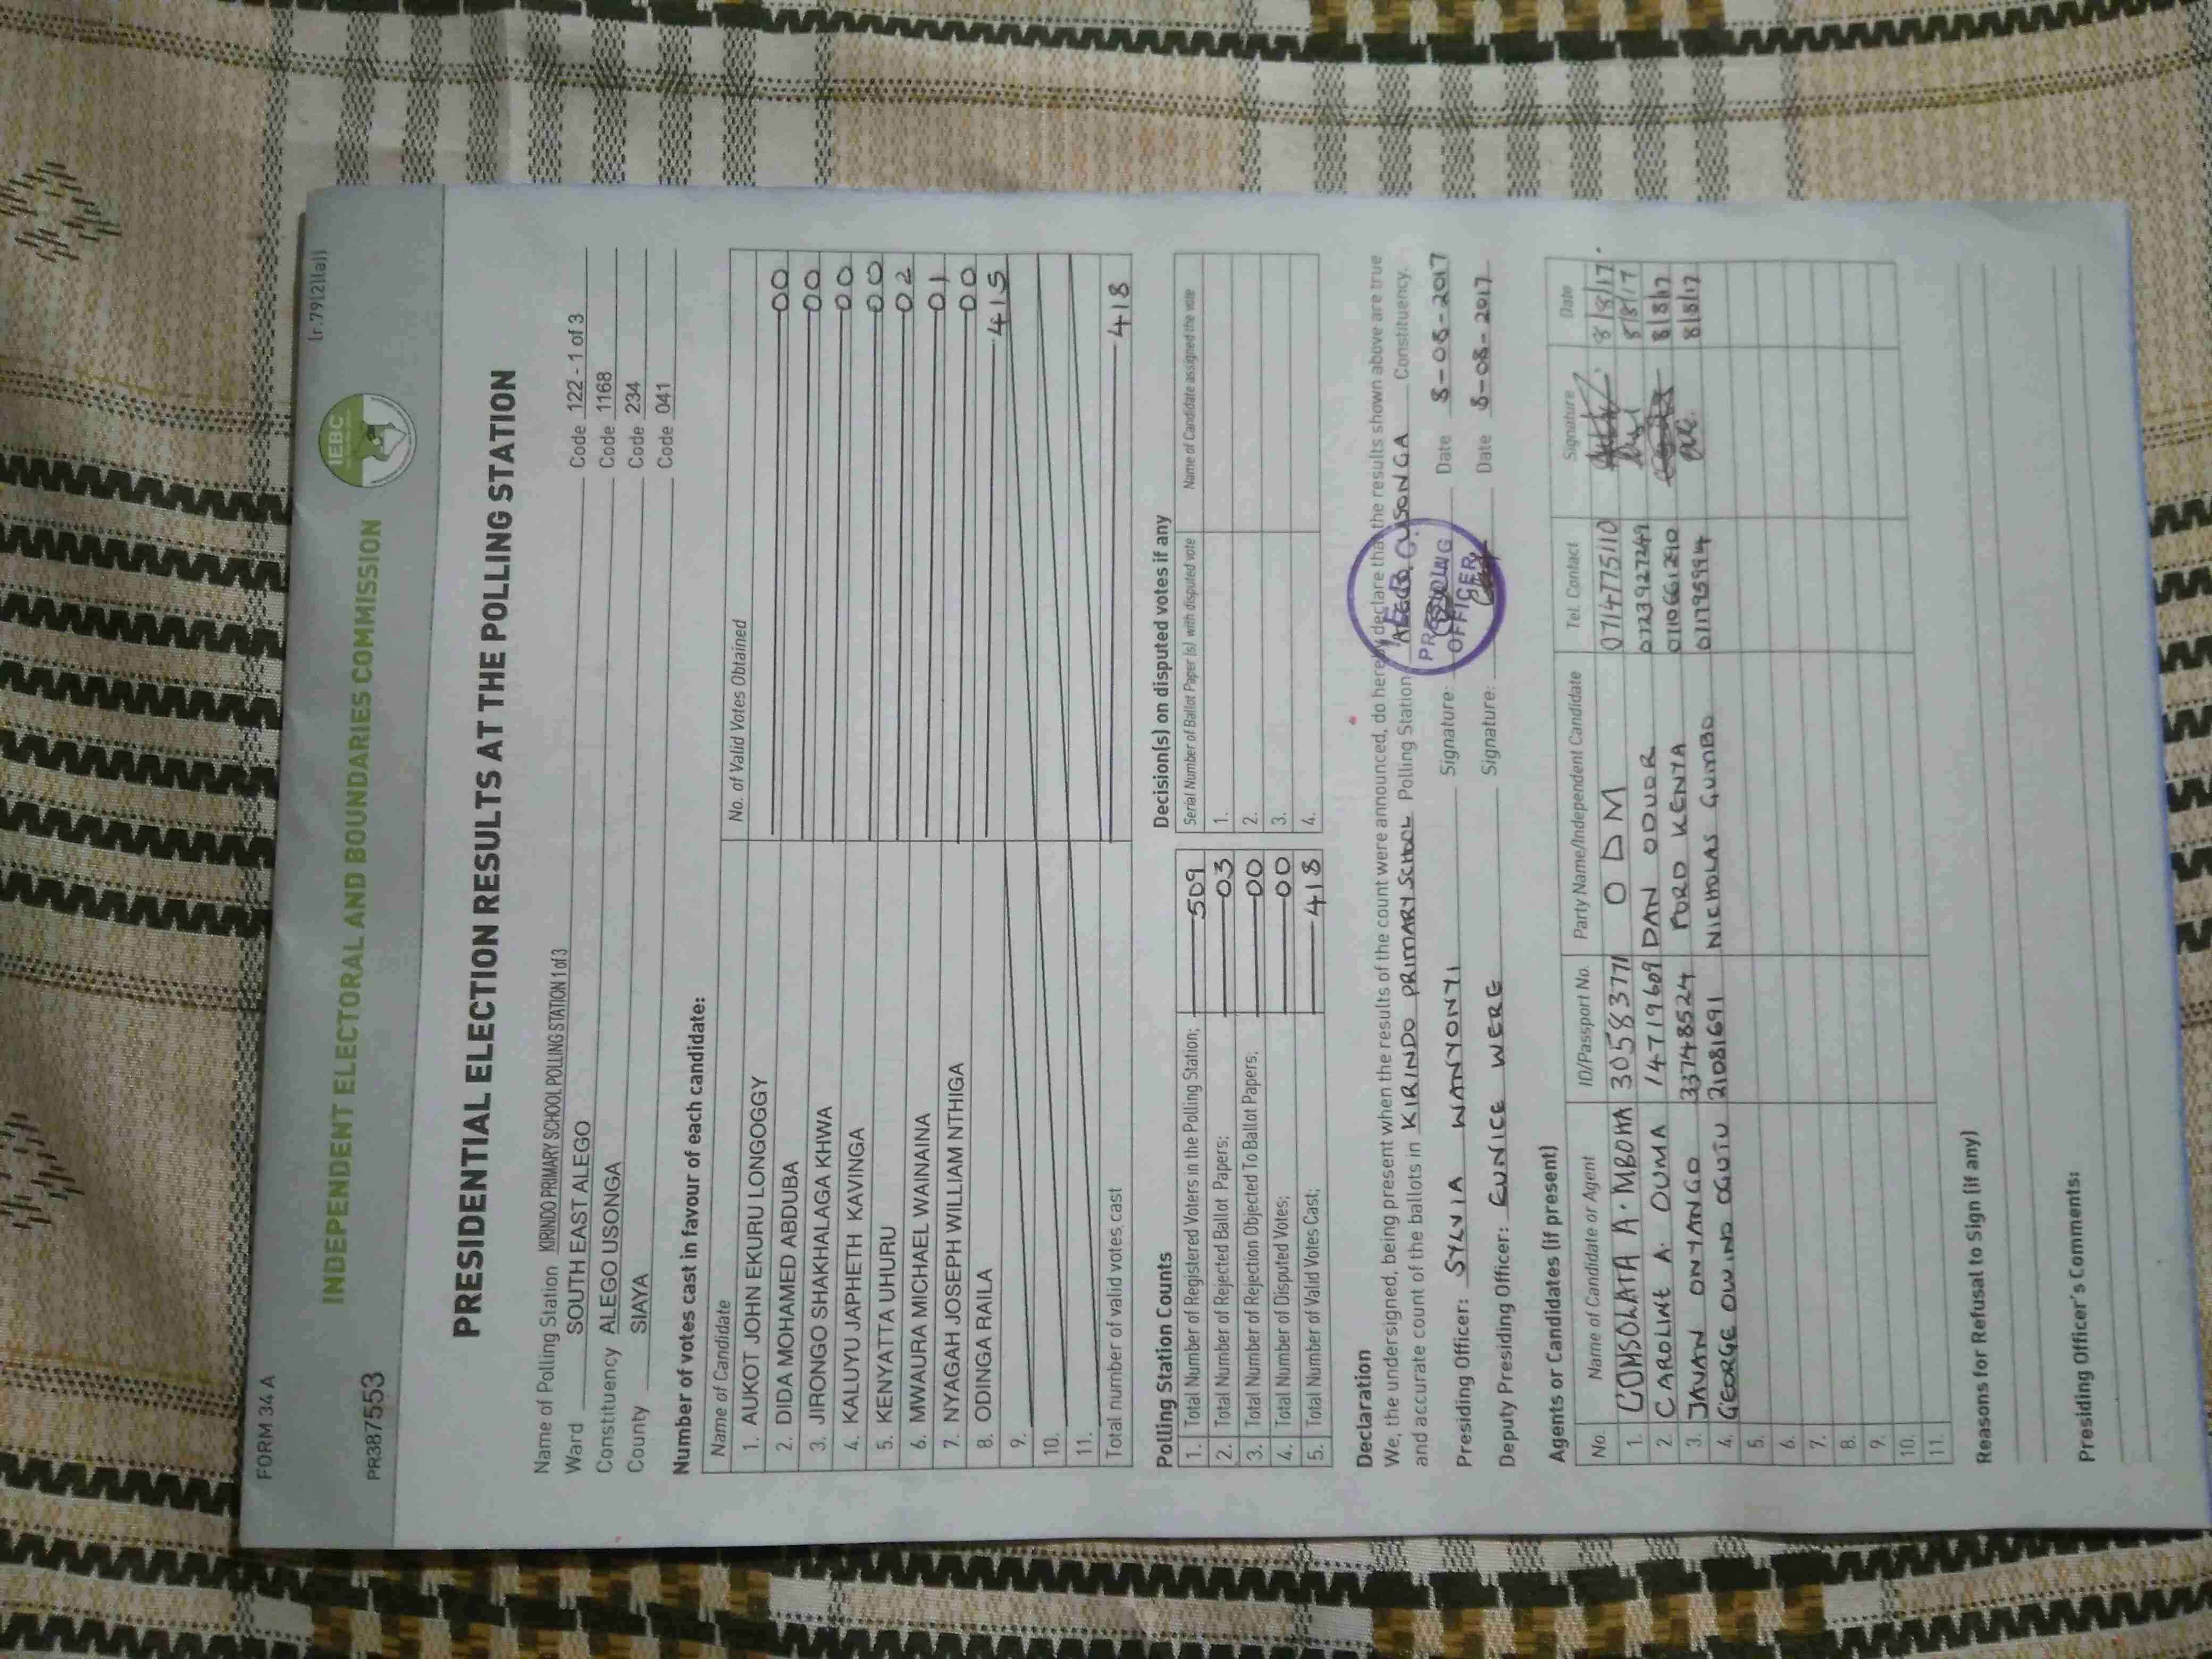 FORM 34 A
(r 79(2)(a))
INDEPENDENT ELECTORAL AND BOUNDARIES COMMISSION
IEBC
PR387553
PRESIDENTIAL ELECTION RESULTS AT THE POLLING STATION
Name of Polling Station KIRINDO PRIMARY SCHOOL POLLING STATION 1 of 3 Code 122 - 1 of 3
Ward SOUTH EAST ALEGO Code 1168
Constituency ALEGO USONGA Code 234
County SIAYA Code 041
Number of votes cast in favour of each candidate:
Name of Candidate No. of Valid Votes Obtained
1. AUKOT JOHN EKURU LONGOGGY 00
2. DIDA MOHAMED ABDUBA 00
3. JIRONGO SHAKHALAGA KHWA 00
4. KALUYU JAPHETH KAVINGA 00
5. KENYATTA UHURU 02
6. MWAURA MICHAEL WAINAINA 01
7. NYAGAH JOSEPH WILLIAM NTHIGA 00
8. ODINGA RAILA 415
9.
10.
11.
Total number of valid votes cast 418
Polling Station Counts
1. Total Number of Registered Voters in the Polling Station; 509
2. Total Number of Rejected Ballot Papers; 03
3. Total Number of Rejection Objected To Ballot Papers; 00
4. Total Number of Disputed Votes; 00
5. Total Number of Valid Votes Cast; 418
Decision(s) on disputed votes if any
Serial Number of Ballot Paper (s) with disputed vote Name of Candidate assigned the vote
1.
2.
3.
4.
Declaration
We, the undersigned, being present when the results of the count were announced, do hereby declare that the results shown above are true
and accurate count of the ballots in KIRINDO PRIMARY SCHOOL Polling Station ALEGO USONGA Constituency.
Presiding Officer: SYLVIA WANYONYI Signature: Date 8-08-2017
Deputy Presiding Officer: EUNICE WERE Signature: Date 8-08-2017
PRESIDING
OFFICER
Agents or Candidates (if present)
No. Name of Candidate or Agent ID/Passport No. Party Name/Independent Candidate Tel. Contact Signature Date
1. CONSOLATA A. MBOHA 30583771 ODM 0714775110 8/8/17.
2. CAROLINE A. OUMA 14719609 DAN ODUOR 0723927249 8/8/17
3. JAVAN ONYANGO 33748524 FORD KENYA 0710661290 8/8/17
4. GEORGE OWINO OGUTU 21081691 NICHOLAS GUMBO 0717959914 8/8/17
5.
6.
7.
8.
9.
10.
11.
Reasons for Refusal to Sign (if any)
Presiding Officer's Comments: